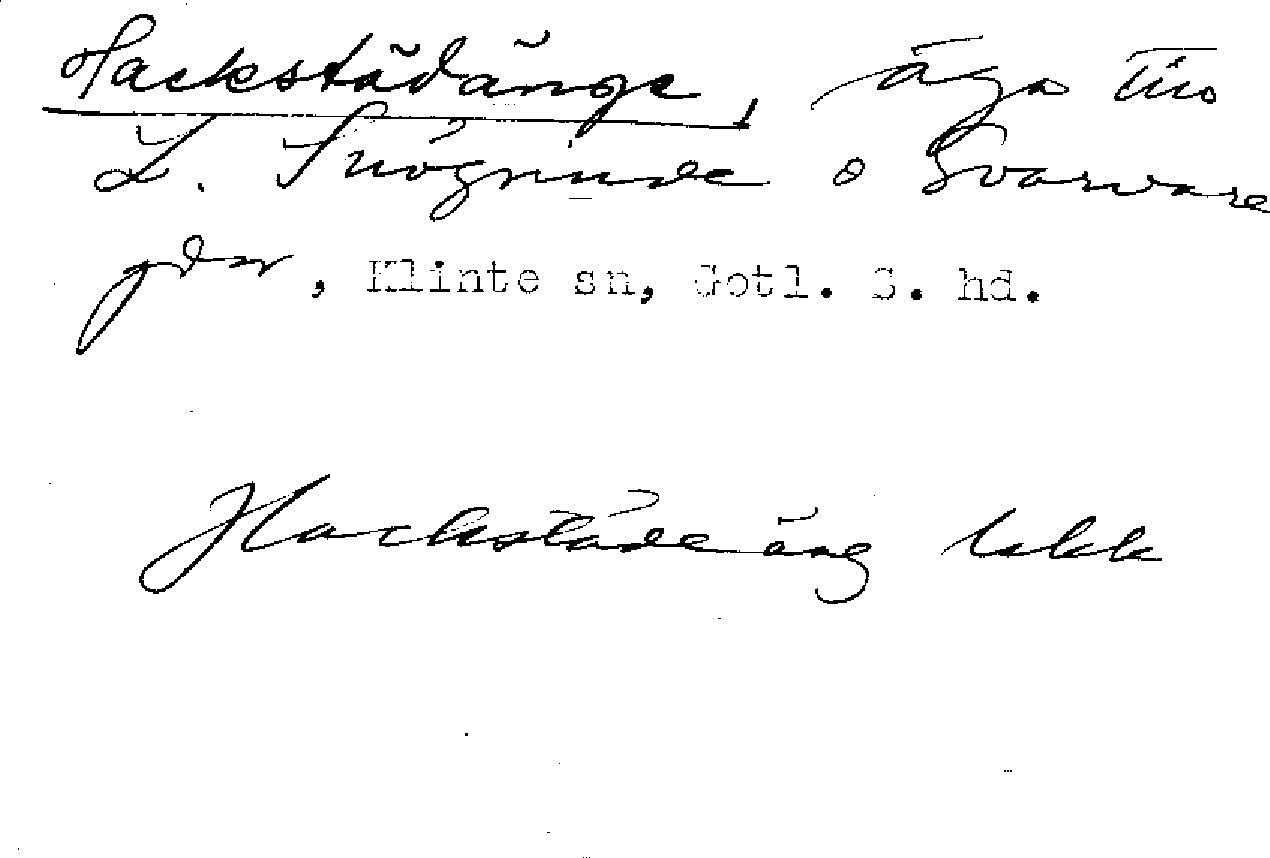 Hackstädänge, äga till
L. Snögrinde o Svarvare
gdr, Klinte sn, Gotl. S. hd.
Hackstäde äng